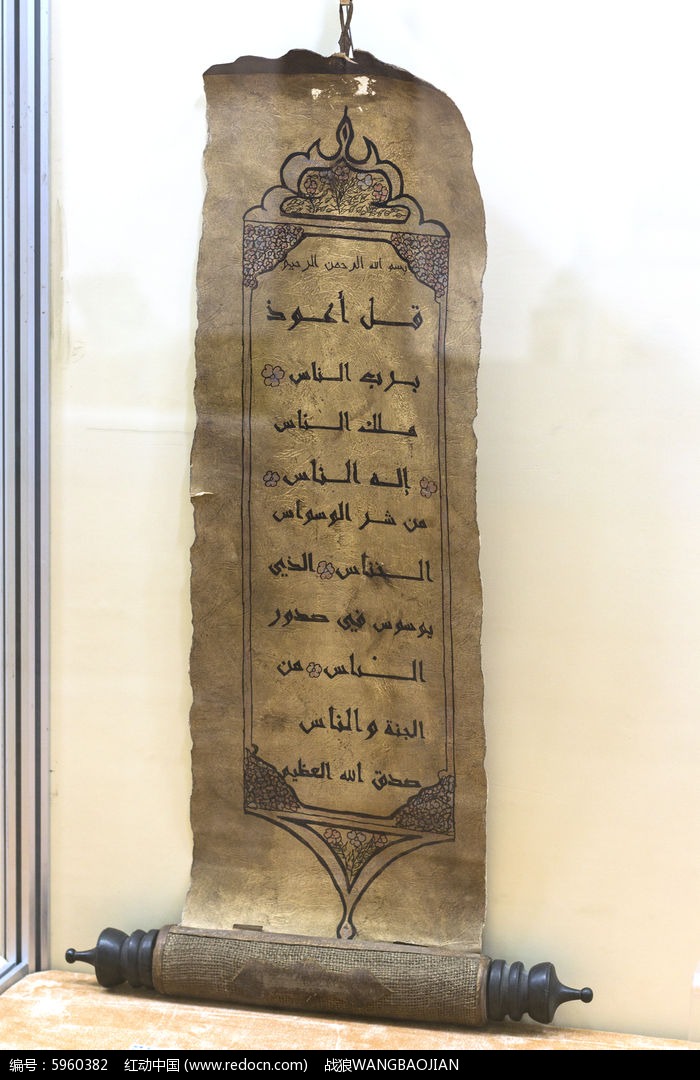 بسم الله الرحمن الرحيم
قل أعوذ
برب الناس
ملك الناس
إله الناس
من شر الوسواس
الخناس الذي
يوسوس في صدور
الناس من
الجنة والناس
صدق الله العظيم
编号：5960382 红动中国 (www.redocn.com) 战狼WANGBAOJIAN